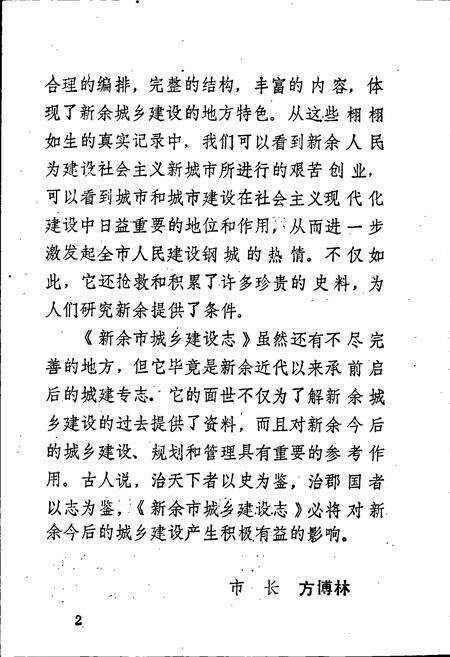 合理的编排，完整的结构，丰富的内容，体
现了新余城乡建设的地方特色。从这些栩栩
如生的真实记录中，我们可以看到新余人民
为建设社会主义新城市所进行的艰苦创业，
可以看到城市和城市建设在社会主义现代化
建设中日益重要的地位和作用，从而进一步
激发起全市人民建设钢城的热情。不仅如
此，它还抢救和积累了许多珍贵的史料，为
人们研究新余提供了条件。
《新余市城乡建设志》虽然还有不尽完
善的地方，但它毕竟是新余近代以来承前启
后的城建专志。它的面世不仅为了解新余城
乡建设的过去提供了资料，而且对新余今后
的城乡建设、规划和管理具有重要的参考作
用。古人说，治天下者以史为鉴，治郡国者
以志为鉴，《新余市城乡建设志》必将对新
余今后的城乡建设产生积极有益的影响。
市 长 方博林
2